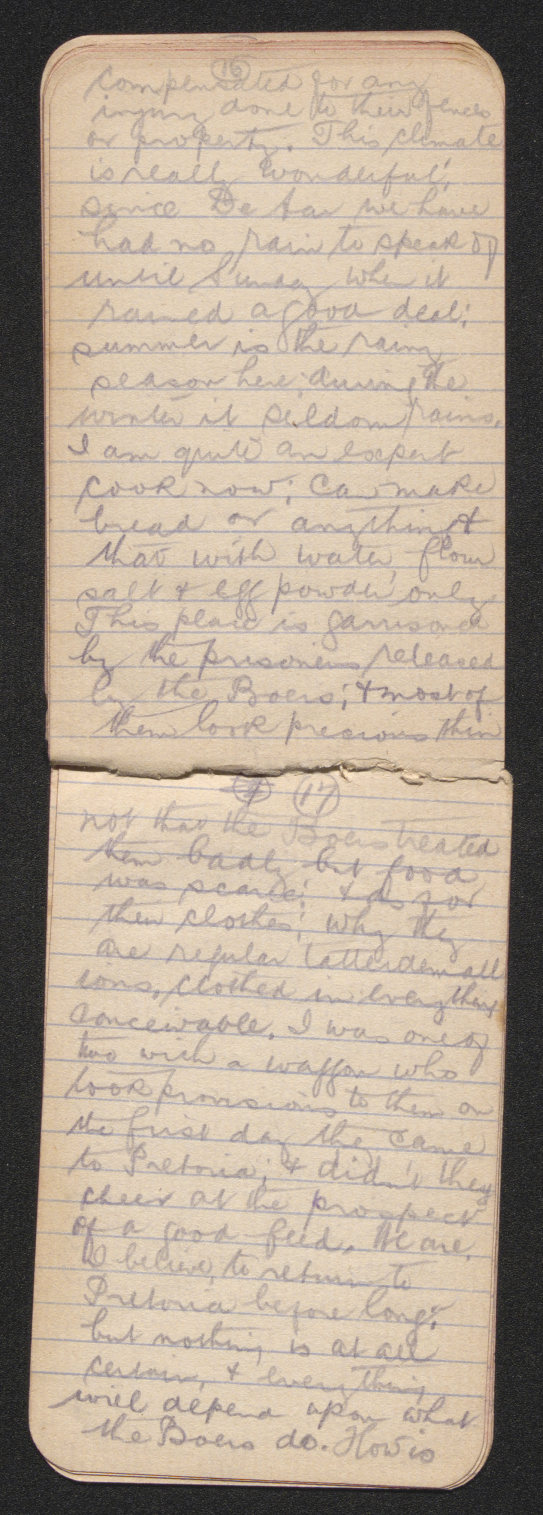 16
compensated for any
injury done to their fences
or property. This climate
is really wonderful;
since De Aar we have
had no rain to speak of
until Sunday when it
rained a good deal;
summer is the rainy
season here; during the
winter it seldom rains.
I am quite an expert
cook now; can make
bread or anything &
that with water, flour
salt & egg powder only
This place is garrisoned
by the prisoners released
by the Boers; & most of
them look precious thin
17
not that the Boers treated
them badly but food
was scarce; & as for
their clothes; why they
are regular tatterdemall
ions, clothed in everything
conceivable. I was one of
two with a waggon who
took provisions to them on
the first day the came
to Pretoria; & didn't they
cheer at the prospect
of a good feed. We are,
I believe, to return to
Pretoria before long;
but nothing is at all
certain, & everything
will depend upon what
the Boers do. How is